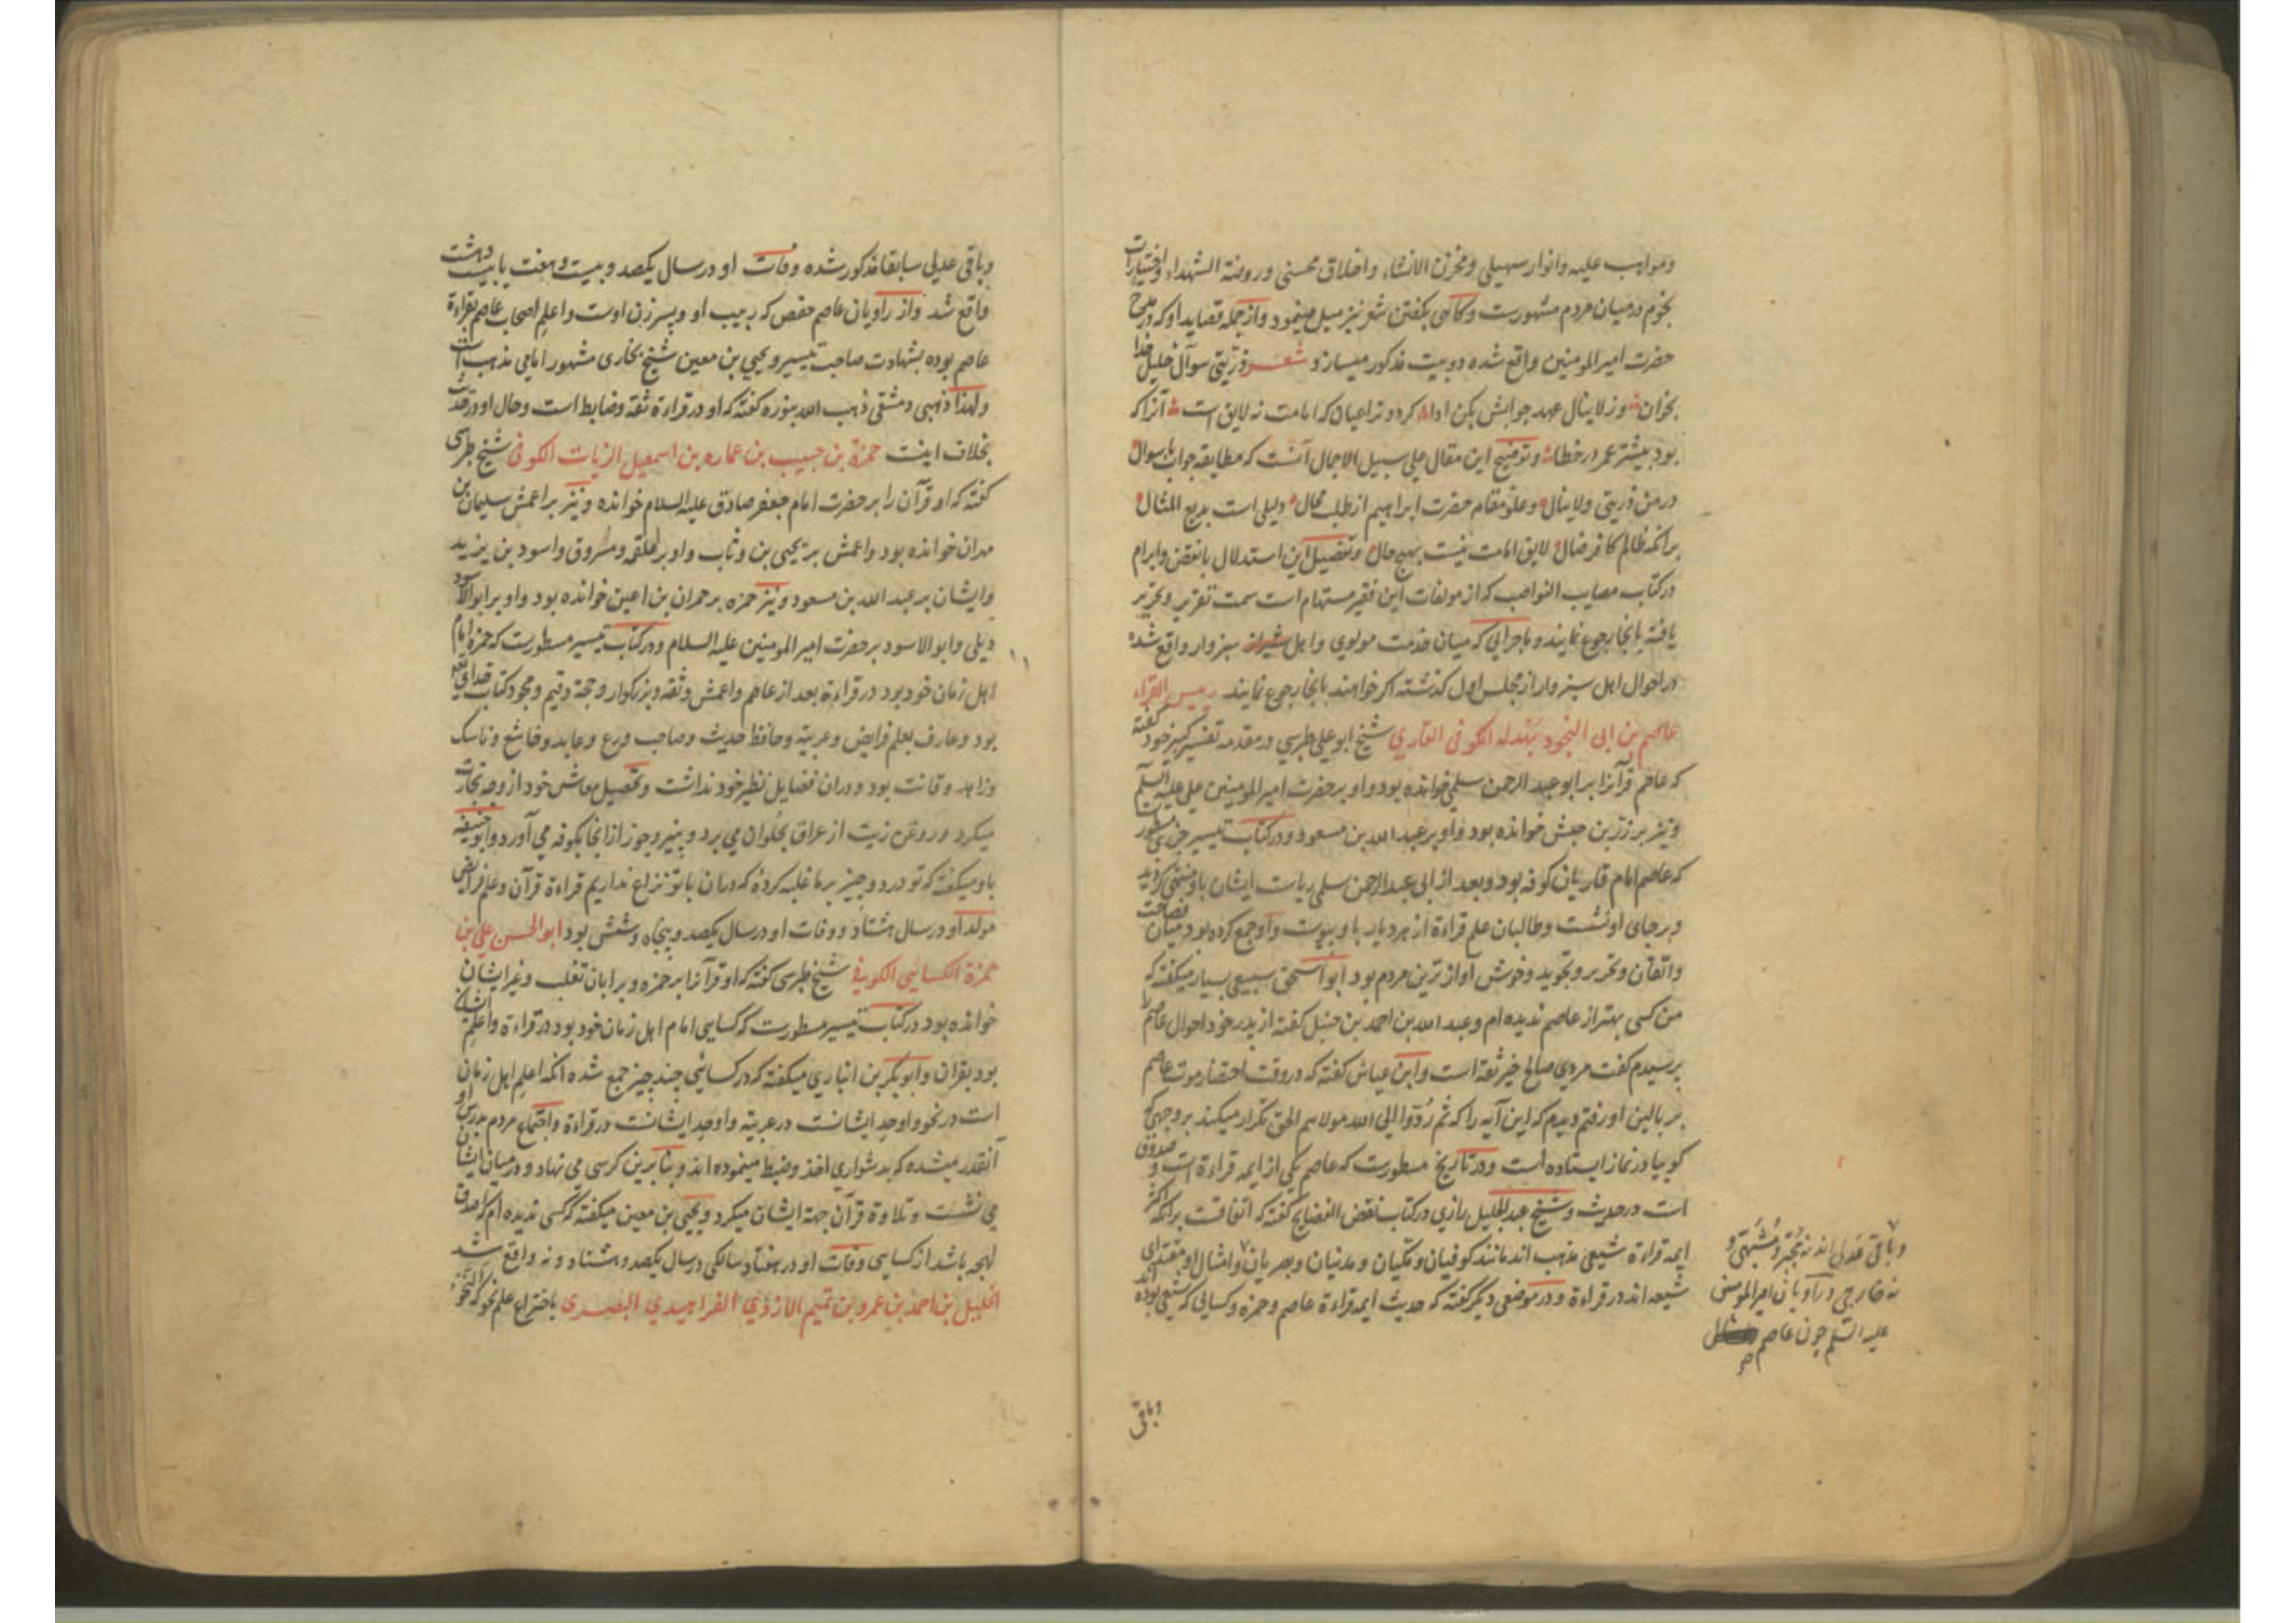 ومواهب علیه وانوار سهیلی ومخزن الانشاء واخلاق محسنی وروضة الشهداء واختیارات
نجوم درمیان مردم مشهورست وکاهی بکفتن شعر نیز میل مینمود وازجمله قصاید او که در مدح
حضرت امیرالمومنین واقع شده دو بیت مذکور میسازد شعر ذریتی سوآل خلیل خدا
بخوان وز لاینال عهد جوابش بکن ادا کردد ترا عیان که امامت نه لایق است آنرا که
بود بیشتر عمر در خطا وتوضیح این مقال علی سبیل الاجمال آنست که مطابقه جواب با سوال
در من ذریتی ولاینال وعلو مقام حضرت ابراهیم از طلب محال دلیلی است بدیع المثال
برانکه ظالم کافر ضال لایق امامت نیست بهیچ حال وتفصیل این استدلال با نقض وابرام
درکتاب مصایب النواصب که از مولفات این فقیر مستهام است سمت تقریر وتحریر
یافته بانجا رجوع نمایند وماجرایی که میان خدمت مولوی واهل سبزوار واقع شده
در احوال اهل سبزوار از مجلس اول کذشته اکر خواهند بانجا رجوع نمایند رییس القراء
عاصم بن ابی النجود بهدله الکوفی القاری شیخ ابو علی طبرسی در مقدمه تفسیر کبیر خود کفته
که عاصم قرآنرا بر ابو عبد الرحمن سلمی خوانده بود واو بر حضرت امیرالمومنین علی علیه السلم
ونیز بر زرّ بن حبیش خوانده بود واو بر عبد الله بن مسعود ودرکتاب تیسیر مسطور
که عاصم امام قاریان کوفه بود وبعد از ابی عبدالرحمن سلمی ریاست ایشان باو منتهی کردید
وبرجای او نشست وطالبان علم قراءة از هر دیار باو پیوست واو جمع کرده بود میان فصاحت
واتقان وتحریر وتجوید وخوش آواز ترین مردم بود ابو اسحق سبیعی بسیار میکفته که
من کسی بهتر از عاصم ندیده ام وعبد الله بن احمد بن حنبل کفته از پدر خود احوال عاصم را
پرسیدم کفت مردی صالح خیر ثقة است وابن عیاش کفته که در وقت احتضار موت عاصم
بر بالین او رفتم دیدم که این آیه را که ثم رُدّوا الی الله مولاهم الحق تکرار میکند بر وجهی که
کوییا در نماز ایستاده است ودر تاریخ مسطورست که عاصم یکی از ایمه قراءة است وصدوق
است در حدیث وشیخ عبدالجلیل رازی درکتاب نقض الفضایح کفته که اتفاقست برانکه اکثر
ایمه قراءة شیعی مذهب اند مانند کوفیان ومکیان ومدنیان وبصریان وامثال او مقتدای
شیعه اند در قراءة ودر موضعی دیکر کفته که حدیث ایمه قراءة عاصم وحمزه وکسایی که شیعی بوده اند
وباقی عدلی اند نه مجبر ومشبهی و
نه خارجی وراویان امیرالمومنین
علیه السلم چون عاصم
وباقی
وباقی عدلی سابقا مذکور شده وفات او در سال یکصد وبیست وهفت یا بیست وهشت
واقع شد واز راویان عاصم حفص که ربیب او وپسر زن اوست واعلم اصحاب عاصم بقراءة
عاصم بوده بشهادت صاحب تیسیر ویحیی بن معین شیخ بخاری مشهور امامی مذهب است
ولهذا ذهبی دمشقی ذهب الله بنوره کفته که او در قراءة ثقة وضابط است وحال او در حدیث
بخلاف اینست حمزة بن حبیب بن عماره بن اسمعیل الزیات الکوفی شیخ طبرسی
کفته که او قرآن را بر حضرت امام جعفر صادق علیه السلام خوانده ونیز بر اعمش سلیمان بن
مهران خوانده بود واعمش بر یحیی بن وثاب واو بر علقمه ومسروق واسود بن یزید
وایشان بر عبد الله بن مسعود ونیز حمزه بر حمران بن اعین خوانده بود واو بر ابو الاسود
دیلی وابو الاسود بر حضرت امیرالمومنین علیه السلام ودرکتاب تیسیر مسطورست که حمزه امام
اهل زمان خود بود در قراءة بعد از عاصم واعمش وثقه وبزرکوار وحجة وقیم ومجود کتاب خدای
بود وعارف بعلم فرایض وعربیة وحافظ حدیث وصاحب ورع وعابد وخاشع وناسک
وزاهد وقانت بود ودران فضایل نظیر خود نداشت وتحصیل معاش خود از وجه تجارت
میکرد وروغن زیت از عراق بحلوان می برد وپنیر وجوز از انجا بکوفه می آورد وابوحنیفه
باو میکفته که تو در دو چیز بر ما غلبه کردهٔ که دران با تو نزاع نداریم قراءة قرآن وعلم فرایض
مولد او در سال هشتاد ووفات او در سال یکصد وپنجاه وشش بود ابو الحسن علی بن
حمزة الکسایی الکوفی شیخ طبرسی کفته که او قرآنرا بر حمزه وبر ابان تغلب وغیر ایشان
خوانده بود درکتاب تیسیر مسطورست که کسایی امام اهل زمان خود بود در قراءة واعلم ایشان
بود بقران وابوبکر بن انباری میکفته که در کسایی چند چیز جمع شده انکه اعلم اهل زمان
است در نحو واوحد ایشانست در عربیة واوحد ایشانست در قراءة واجتماع مردم بدرس او
آنقدر میشده که بدشواری اخذ وضبط مینموده اند وبنابرین کرسی می نهاد ودرمیان ایشان
می نشست وتلاوة قرآن جهة ایشان میکرد ویحیی بن معین میکفته که کسی ندیده ام که اصدق
لهجه باشد از کسایی وفات او در هفتاد سالکی در سال یکصد وهشتاد ونه واقع شد
الخلیل بن احمد بن عمرو بن تمیم الازدی الفراهیدی البصری باختراع علم نحو که